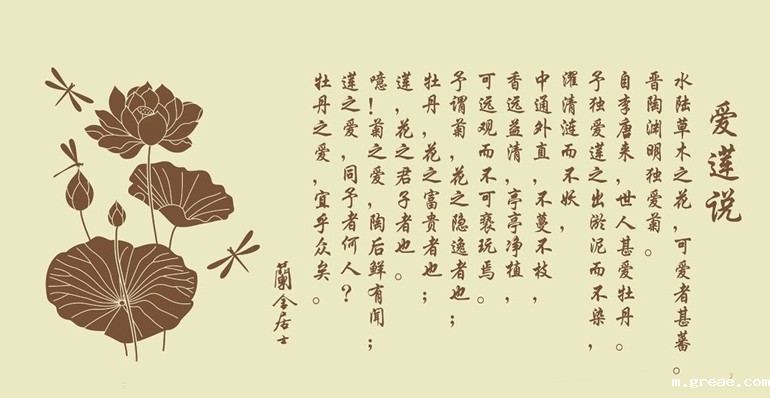 爱莲说
水陆草木之花，可爱者甚蕃。
晋陶渊明独爱菊。
自李唐来，世人甚爱牡丹。
予独爱莲之出淤泥而不染，
濯清涟而不妖，
中通外直，不蔓不枝，
香远益清，亭亭净植，
可远观而不可亵玩焉。
予谓菊，花之隐逸者也；
牡丹，花之富贵者也；
莲，花之君子者也。
噫！菊之爱，陶后鲜有闻；
莲之爱，同予者何人？
牡丹之爱，宜乎众矣。
居士
m.greae.com